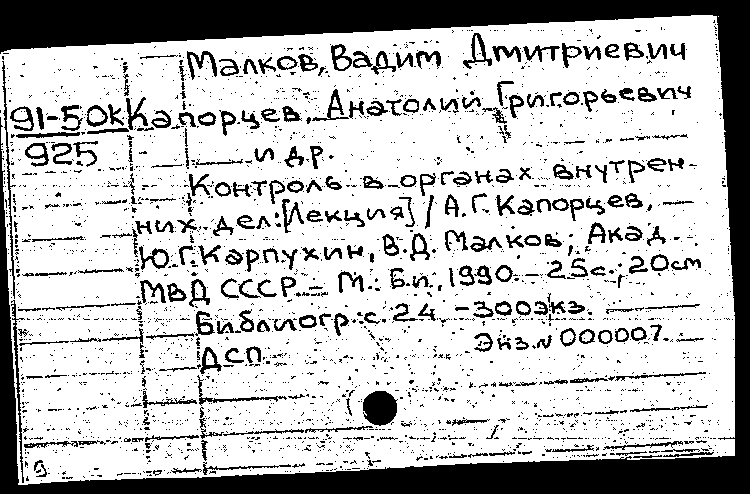 Малков, Вадим Дмитриевич
91-50к Капорцев, Анатолий Григорьевич
925 и др.
Контроль в органах внутрен-
них дел: [Лекция] / А.Г. Капорцев,
Ю.Г. Карпухин, В.Д. Малков; Акад.
МВД СССР. – М.: Б.и., 1990. – 25с.; 20см
Библиогр.: с. 24. – 300экз.
ДСП Экз.N 000007.
9